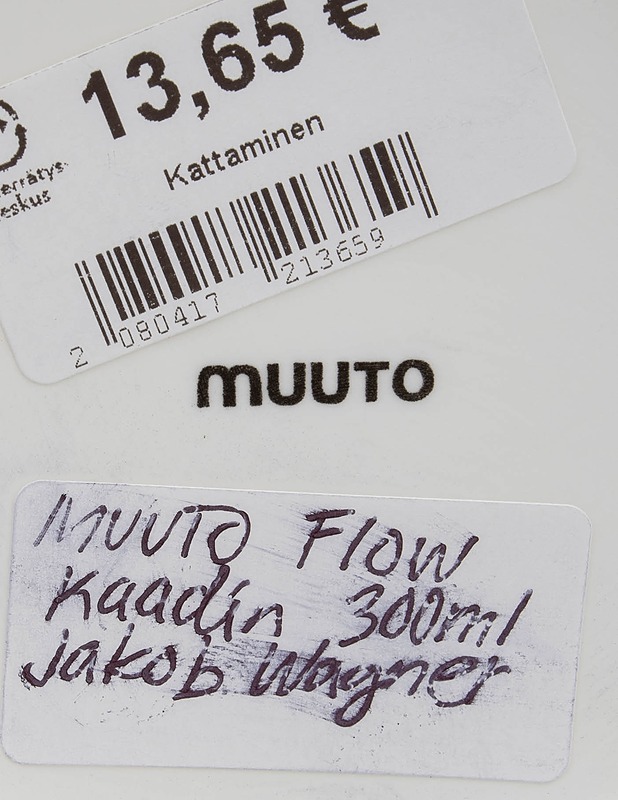 13,65 €
Kattaminen
2 080417 213659
muuto
MUUTO Flow
Kaadin 300ml
Jakob Wagner